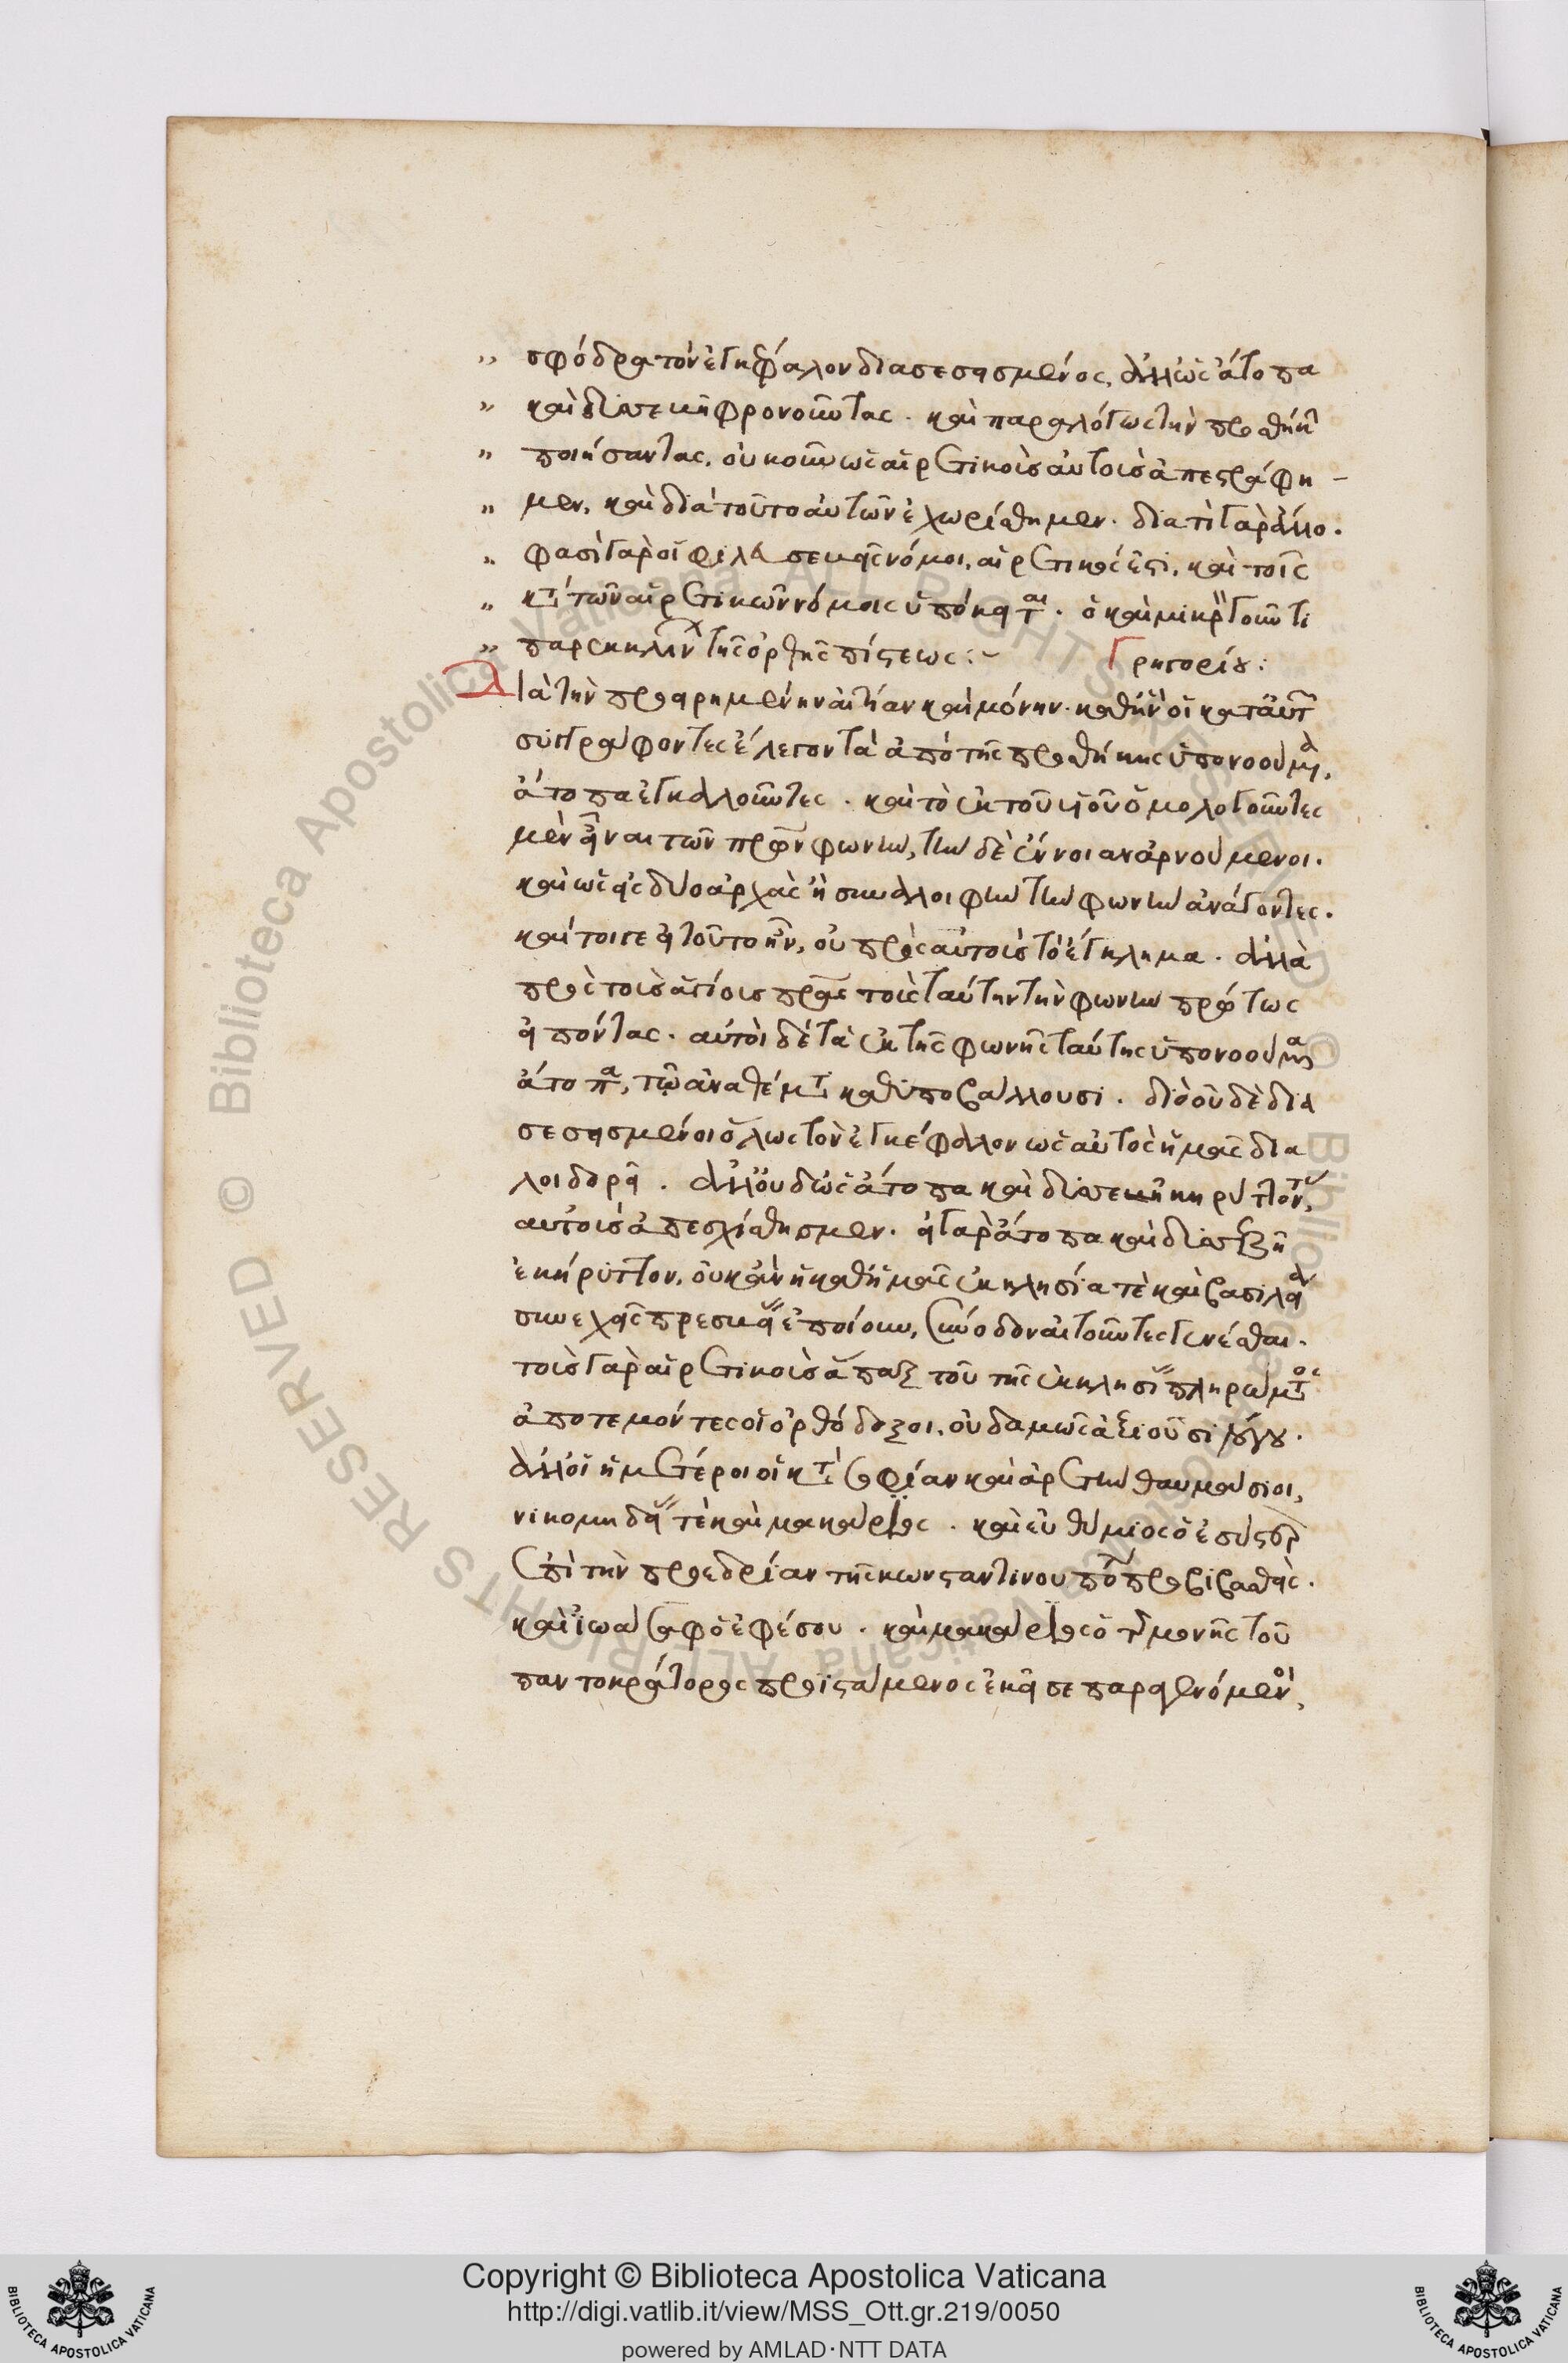 „ σφόδρα τὸν ἐγκέφαλον διασεσησμένος, ἀλλ' ὡς ἄτοπα
„ καὶ διάπυκῆ φρονοῦντας. καὶ παραλόγως τὴν προσθήκην
„ ποιήσαντας. οὐκοῦν ὡς αἱρετικοὺς αὐτοὺς ἀπεστράφη-
„ μεν, καὶ διὰ τοῦτο αὐτῶν ἐχωρίσθημεν. διατί γὰρ ἄλλο.
„ φασὶ γὰρ οἱ φιλευσεβεῖς νόμοι, αἱρετικός ἐστι, καὶ τοῖς
„ κατὰ τῶν αἱρετικῶν νόμοις ὑπόκειται. ὁ καὶ μικρὸν γοῦν τι
„ παρεκκλίνων τῆς ὀρθῆς πίστεως:- Γρηγορίου:
Διὰ τὴν προειρημένην αἰτίαν καὶ μόνην. καθ' ἣν οἱ κατ' αὐτῶν
συγγράφοντες ἔλεγον τὰ ἀπὸ τῆς προσθήκης ὑπονοούμενα,
ἄτοπα ἐγκαλοῦντες. καὶ τὸ ἐκ τοῦ υἱοῦ ὁμολογοῦντες
μὲν εἶναι τῶν πατέρων φωνὴν, τὴν δὲ ἔννοιαν ἀρνούμενοι.
καὶ ὡς εἰς δύο ἀρχὰς ἢ συναλοιφὴν τὴν φωνὴν ἀνάγοντες.
καίτοιγε εἰ τοῦτο ἦν, οὐ πρὸς αὐτοὺς τὸ ἔγκλημα. ἀλλὰ
πρὸς τοὺς ἁγίους πατέρας τοὺς ταύτην τὴν φωνὴν πρώτως
εἰπόντας. αὐτοὶ δὲ τὰ ἐκ τῆς φωνῆς ταύτης ὑπονοούμενα
ἄτοπα, τῷ ἀναθέματι καθυποβάλλουσι. διὸ οὐδὲ δια
σεσησμένοι ὅλως τὸν ἐγκέφαλον ὡς αὐτὸς ἡμᾶς δια
λοιδορεῖ. ἀλλ' οὐδ' ὡς ἄτοπα καὶ κηρύττοντας,
αὐτοὺς ἀπεσχίσθημεν. εἰ γὰρ ἄτοπα καὶ
ἐκήρυττον, οὐκ ἂν ἡ καθ' ἡμᾶς ἐκκλησία τὲ καὶ βασιλεία
συνεχεῖς πρεσβείας ἐποίουν, σύνοδον αἰτοῦντες γενέσθαι.
τοὺς γὰρ αἱρετικοὺς ἅπαξ τοῦ τῆς ἐκκλησίας πληρώματος
ἀποτεμόντες οἱ ὀρθόδοξοι, οὐδαμῶς ἀξιοῦσι λόγου.
ἀλλ' οἱ ἡμέτεροι οἱ κατὰ σοφίαν καὶ ἀρετὴν θαυμάσιοι,
νικομηδείας τὲ καὶ μακάριος. καὶ εὐθύμιος ὁ ἐσύστερον
ἐπὶ τὴν προεδρίαν τῆς κωνσταντινουπόλεως προβιβασθεὶς.
καὶ ἰωάσαφ ὁ ἐφέσου. καὶ μακάριος ὁ τῆς μονῆς τοῦ
παντοκράτορος προϊστάμενος ἐκεῖσε παραγενόμενοι,
Copyright © Biblioteca Apostolica Vaticana
http://digi.vatlib.it/view/MSS_Ott.gr.219/0050
powered by AMLAD·NTT DATA